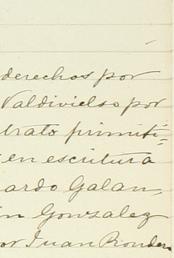 derechos por
Valdivielso por
trato primiti-
en escritura
ardo Galan,
in Gonzalez
or Juan